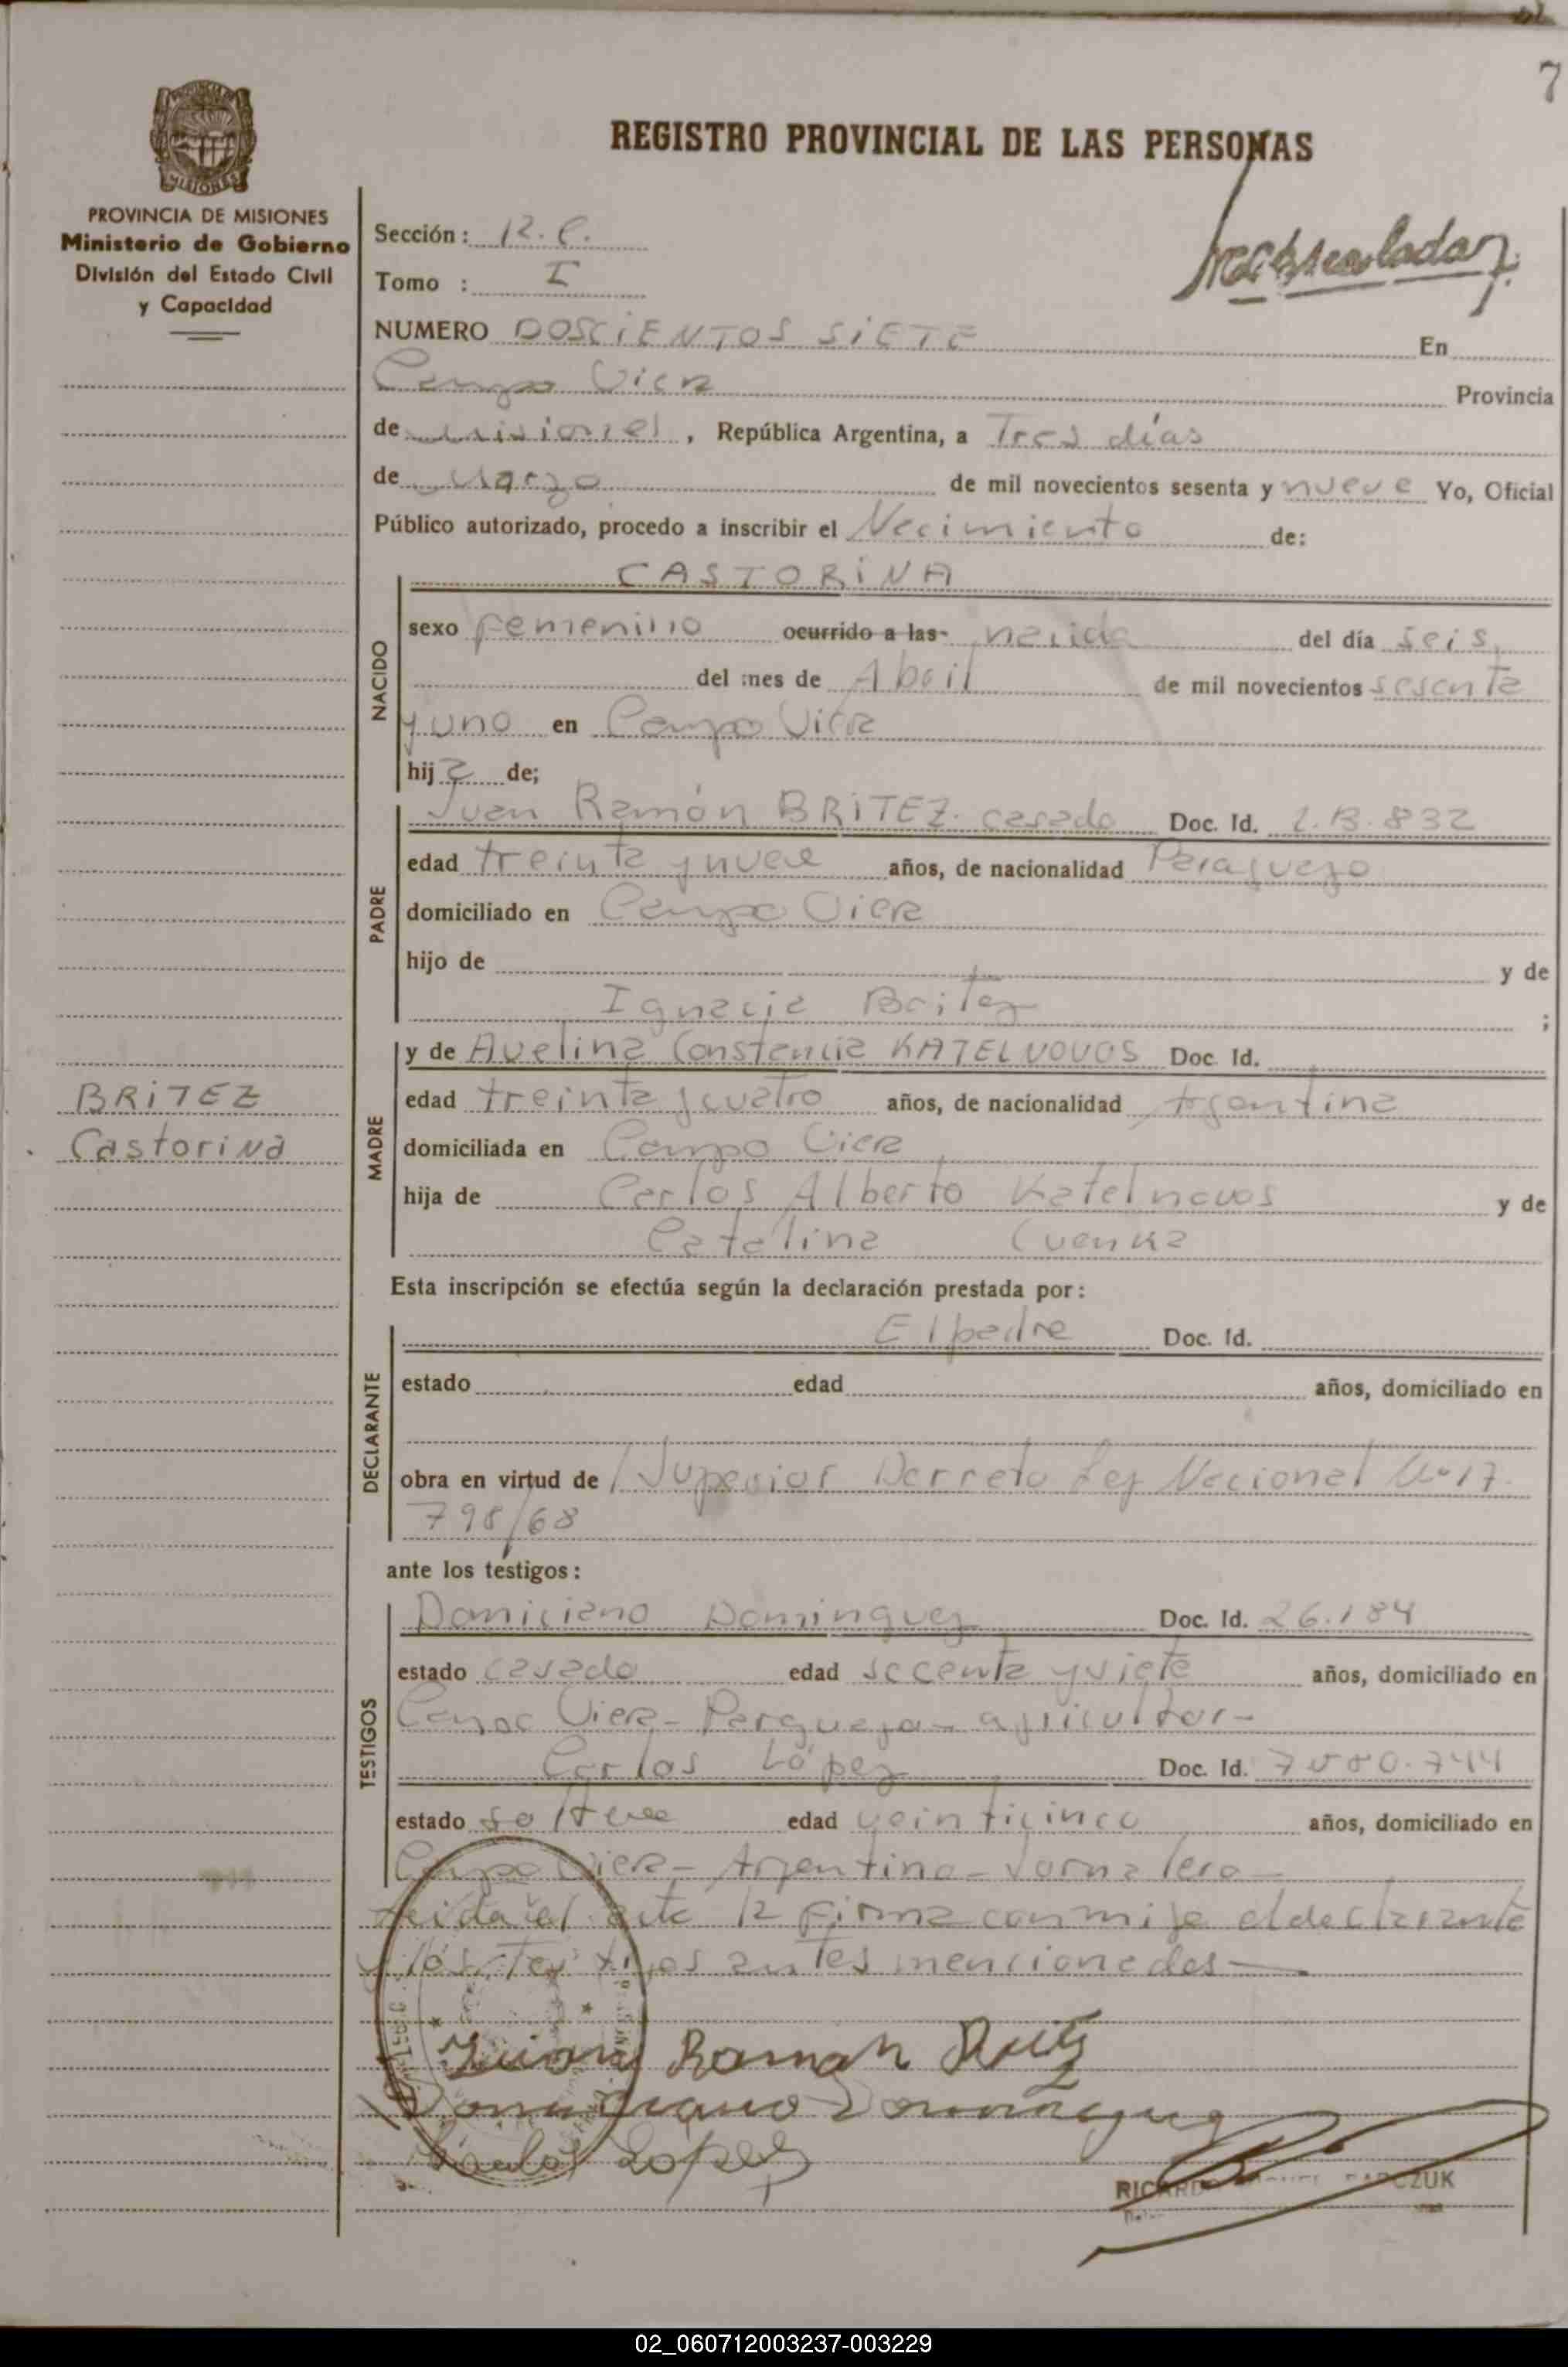 7
REGISTRO PROVINCIAL DE LAS PERSONAS
PROVINCIA DE MISIONES
Ministerio de Gobierno
División del Estado Civil
y Capacidad
Sección: 12. C.
Tomo : I
NUMERO DOSCIENTOS SIETE En
Campo Viera Provincia
de Misiones, República Argentina, a Tres días
de Marzo de mil novecientos sesenta y nueve Yo, Oficial
Público autorizado, procedo a inscribir el Nacimiento de:
CASTORINA
NACIDO
sexo femenino ocurrido a las nacida del día seis
del mes de Abril de mil novecientos sesenta
y uno en Campo Viera
hija de;
PADRE
Juan Ramón BRITEZ. casado Doc. Id. 2.B.832
edad treinta y nueve años, de nacionalidad Paraguayo
domiciliado en Campo Viera
hijo de y de
Ignacia Britez ;
MADRE
y de Avelina Constancia KATELNOVOS Doc Id.
edad treinta y cuatro años, de nacionalidad Argentina
BRITEZ
Castorina
domiciliada en Campo Viera
hija de Carlos Alberto Katelnovos y de
Catalina Cuenka
Esta inscripción se efectúa según la declaración prestada por:
DECLARANTE
El padre Doc. Id.
estado edad años, domiciliado en
obra en virtud de Superior Decreto Ley Nacional Nº 17.
798/68
ante los testigos:
TESTIGOS
Domiciano Dominguez Doc. Id. 26.184
estado casado edad secenta y siete años, domiciliado en
Campo Viera - Parguaya - agricultor -
Carlos López Doc. Id. 7.080.744
estado soltero edad veinticinco años, domiciliado en
Campo Viera - Argentino - Jornalero -
Leida el acta la firma conmigo el declarante
y los Testigos antes mencionados -
Juan Ramon
Domiciano Dominguez
Carlos Lopez
RICARDO CZUK
02_060712003237-003229